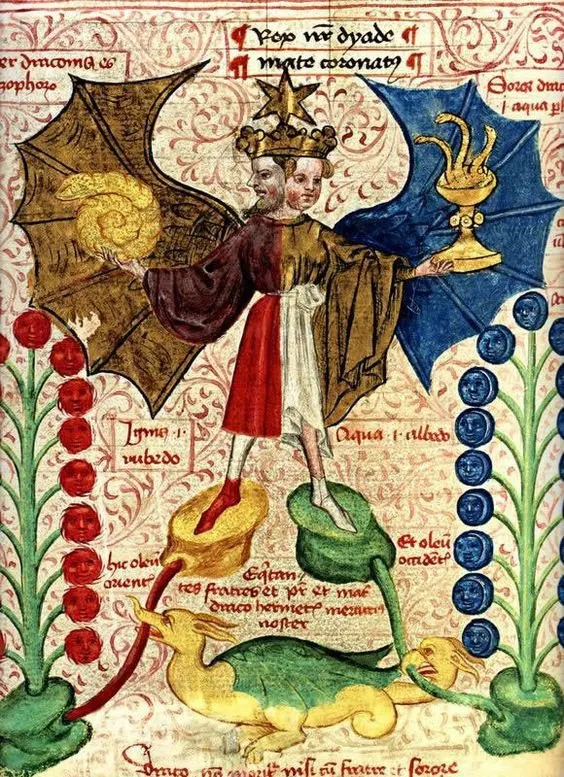 ¶ Rex nr̄ dyade ¶
¶ mate coronatꝰ ¶
er draconis es
Soror drac
i aqua
Ignis · i ·
rubedo
Aqua · i · albedo
hic oleū
orient
Et oleū
occident
tes fratres et pr̄ et mat
draco hermetꝭ mercuriꝰ
noster
Draco nō moritꝰ nisi cū fratre et sorore